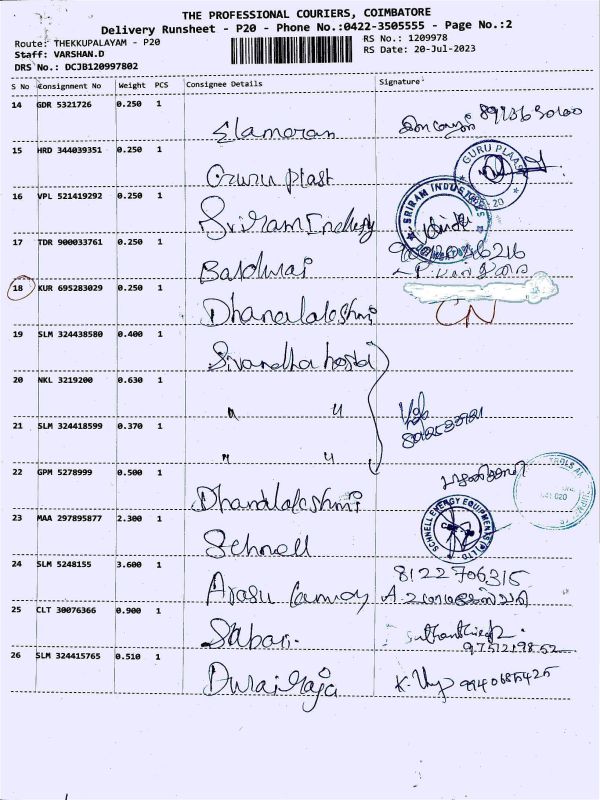 THE PROFESSIONAL COURIERS, COIMBATORE
Delivery Runsheet - P20 - Phone No.:0422-3505555 - Page No.:2
Route: THEKKUPALAYAM - P20
RS No.: 1209978
Staff: VARSHAN.D
RS Date: 20-Jul-2023
DRS No.: DCJB120997802
S No Consignment No Weight PCS Consignee Details Signature
14 GDR 5321726 0.250 1
Elamaran
15 HRD 344039351 0.250 1
GURU PLAAST
Guru plast
16 VPL 521419292 0.250 1
SRIRAM INDUSTRIES
Sriram
17 TDR 900033761 0.250 1
18 KUR 695283029 0.250 1
Dhanalakshmi CN
19 SLM 324438580 0.400 1
20 NKL 3219200 0.630 1
" "
21 SLM 324418599 0.370 1
" "
22 GPM 5278999 0.500 1
Dhanalakshmi
23 MAA 297895877 2.300 1
SCHNELL ENERGY EQUIPMENTS (P) LTD
Schnell
24 SLM 5248155 3.600 1
8122706315
Arasu
25 CLT 30076366 0.900 1
Sabari.
9751219852
26 SLM 324415765 0.510 1
Durairaja 9940685425